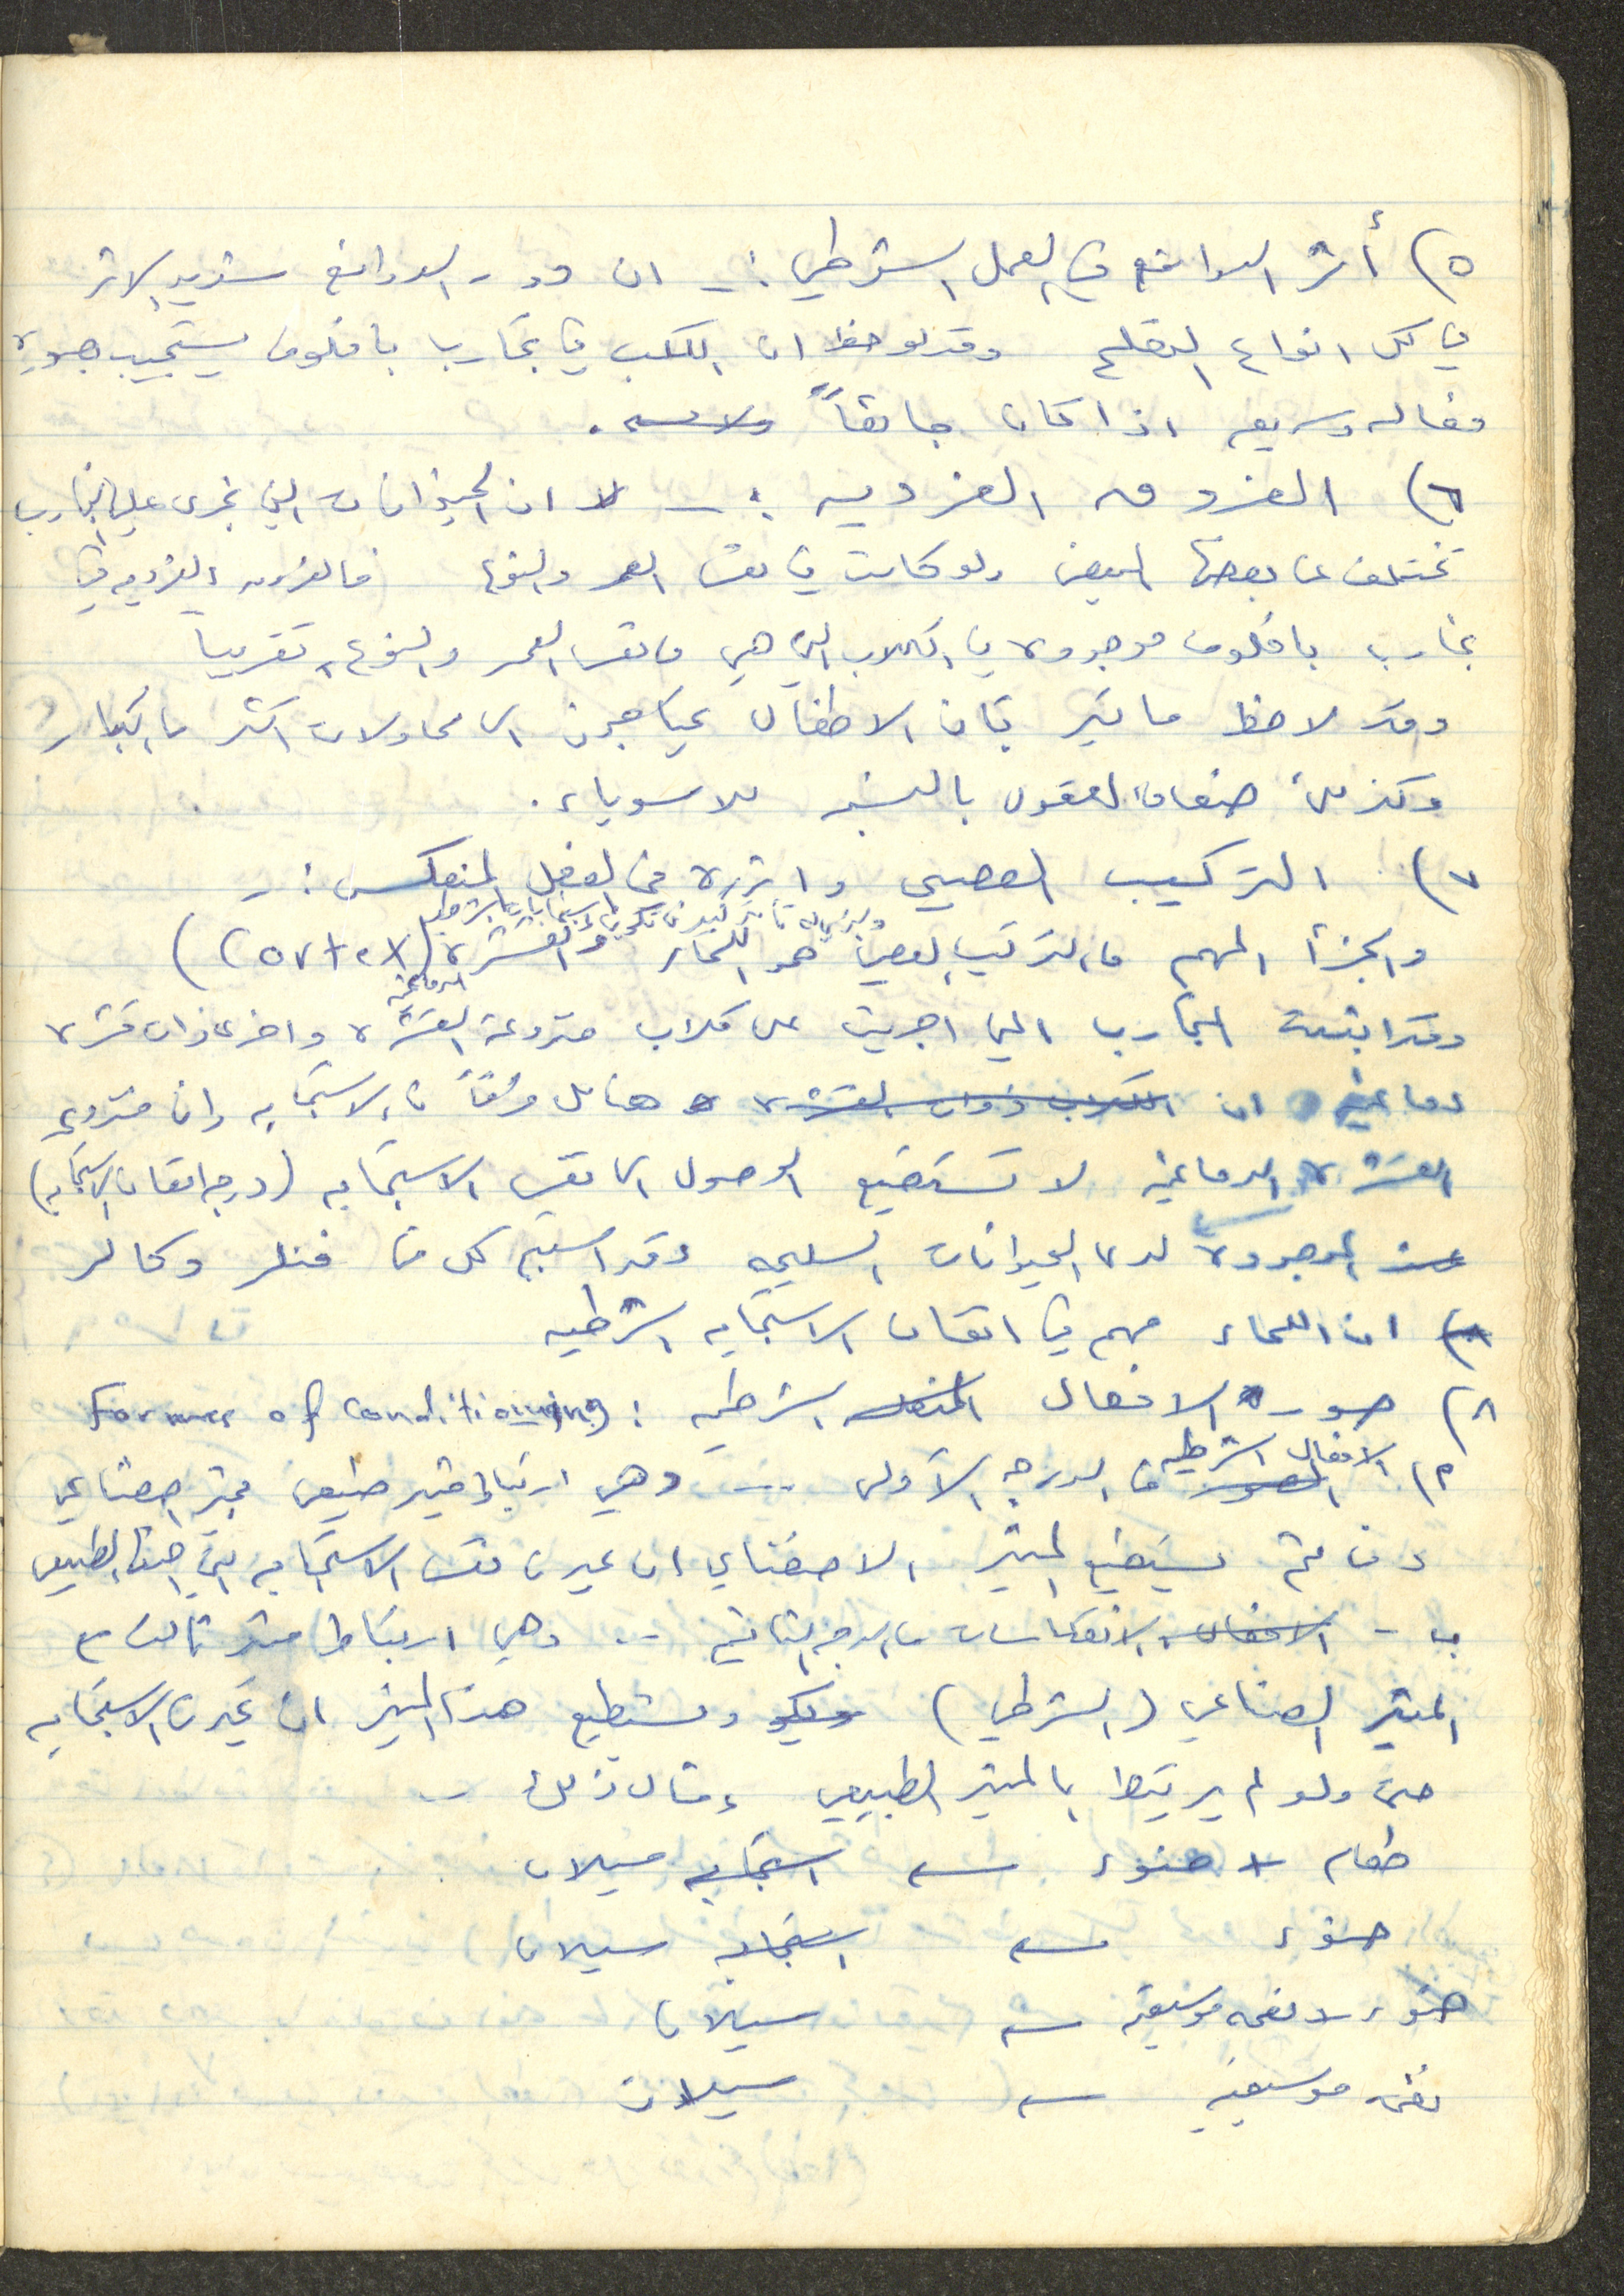 ٥) أثر الدوافع في العمل الشرطي :- ان دور الدوافع شديد الاثر
في كل انواع التعلم وقد لوحظ ان الكلب في تجارب بافلوف يستجيب بصورة
فعاله وسريعه اذا كان جائعاً
٦) الفروق الفرديه :- ان الحيوانات التي تجرى عليها التجارب
تختلف عن بعضها البعض ولو كانت في نفس العمر والنوع فالفروق الفرديه في
تجارب بافلوف موجودة في الكلاب التي هي من نفس العمر والنوع تقريباً
وقد لاحظ ماتير بان الاطفال يحتاجون الى محاولات اكثر من الكبار
وكذلك ضعاف العقول بالنسبه للاسوياء .
٧) التركيب العصبي واثره في الفعل المنعكس :-
والجزأ المهم من التركيب العصبي هو اللحاء والقشرة الدماغيه (Cortex)
وقد اثبتت التجارب التي اجريت على كلاب منزوعة القشرة واخرى ذات قشرة
دماغيه ان الكلاب ذوات القشرة هنالك فرقاً في الاستجابه وان منزوعي
القشرة الدماغيه لا تستطيع الوصول الى نفس الاستجابه (درجه اتقان الاستجابه)
الموجودة لدى الحيوانات السليمه وقد استنتج كل من فنلر وكالر
ان اللحاء مهم في اتقان الاستجابه الشرطيه
٨) صور الافعال المنعكسه الشرطيه : Formes of Conditioning
٢) الافعال الشرطيه من الدرجه الاولى -- وهي ارتباط مثير طبيعي بمثير اصطناعي
ومن ثم يستطيع المثير الاصطناعي ان يحدث نفس الاستجابه التي احدثها الطبيعي
ب - الافعال الانعكاسات من الدرجه الثانيه -- وهي ارتباط مثير ثالث مع
المثير الصناعي (الشرطي) ويستطيع هذا المثير ان يحدث الاستجابه
حتى ولو لم يرتبط بالمثير الطبيعي ومثال ذلك --
طعام + ضوء ← استجابه سيلان
ضوء ← استجابه سيلان
ضوء + نغمه موسيقيه ← سيلان
نغمه موسيقيه ← سيلان